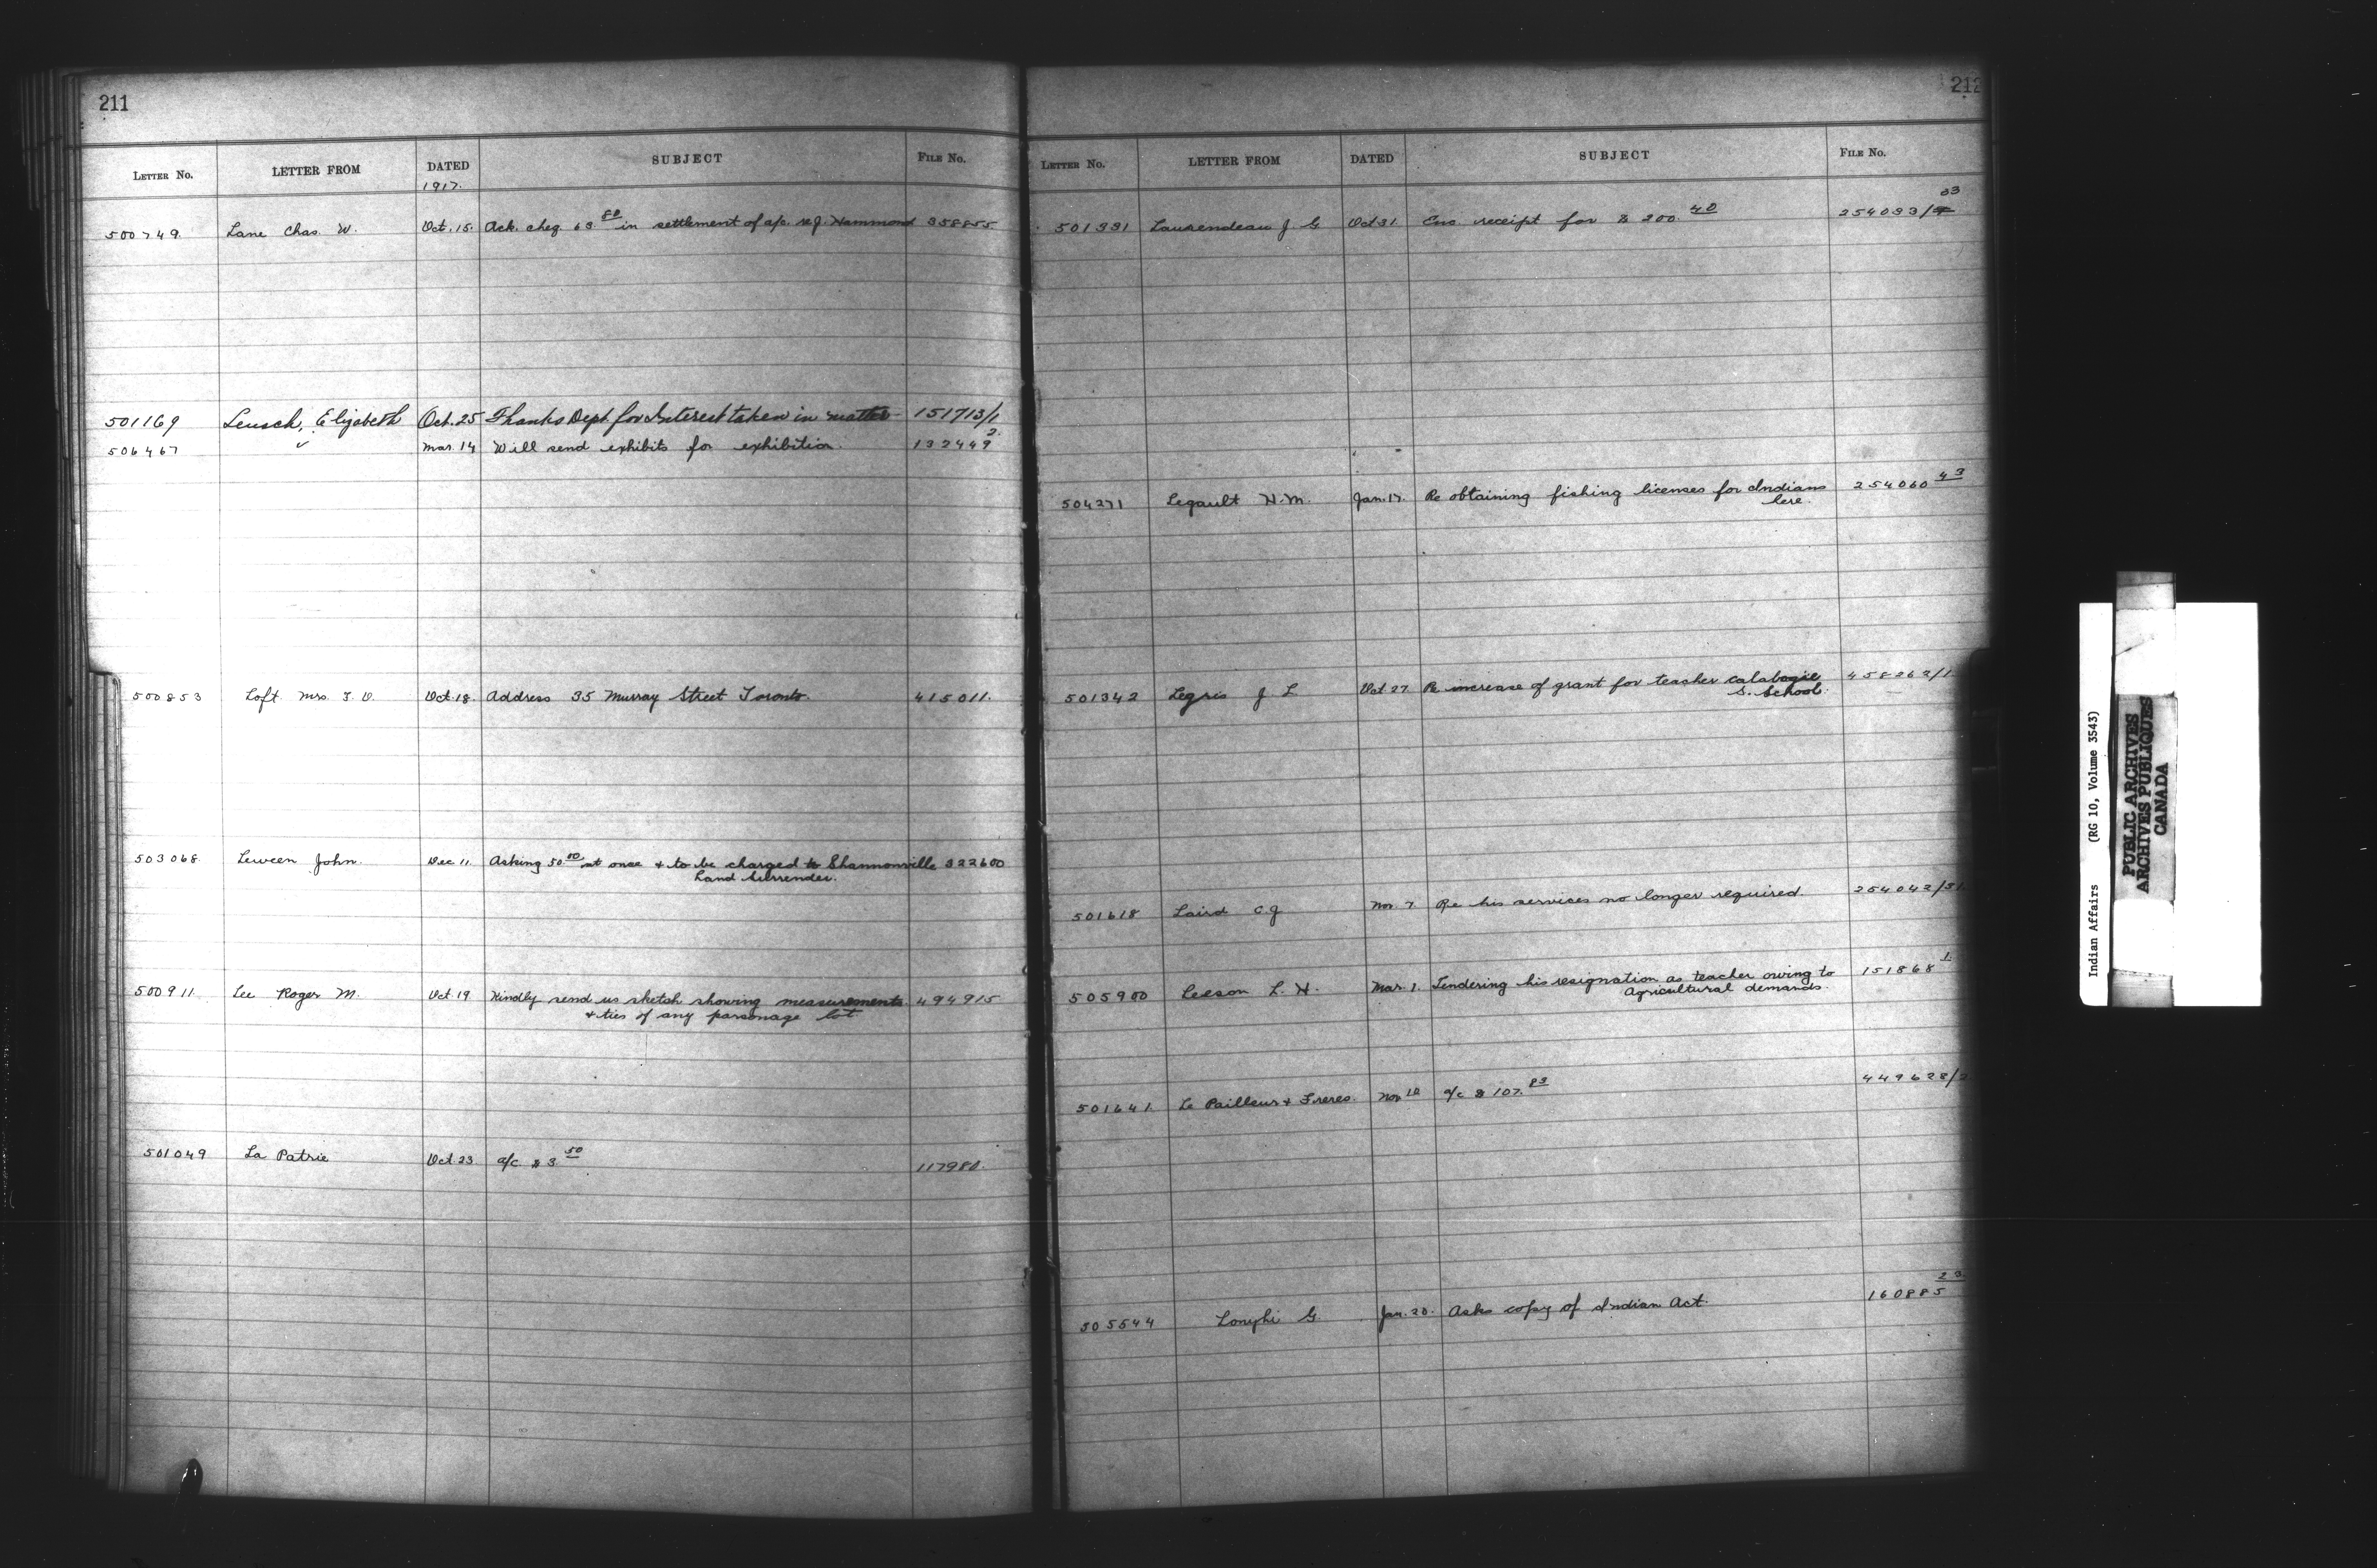 211
LETTER No. LETTER FROM DATED SUBJECT FILE No.
1917.
500749. Lane Chas. W. Oct. 15. Ack. cheq. 63.80 in settlement of a/c. re J. Hammond 358855
501169 Leusch, Elizabeth Oct. 25 Thanks Dept for Interest taken in matter 151713/1
506467 Mar. 14 Will send exhibits for exhibition. 132449 2.
500853 Loft Mrs. Oct. 18. Address 35 Murray Street Toronto. 415011.
503068. Leween John. Dec 11. Asking 50.00 at once + to be charged to Shannonville 322600
Land Surrender.
500911 Lee Roger M. Oct. 19 Kindly send us sketch showing measurements 494915
+ ties of any parsonage lot
501049 La Patrie Oct. 23 a/c $3.50 117980.
212
LETTER No. LETTER FROM DATED SUBJECT FILE No.
501331 Laurendeau J. G Oct 31. Enc receipt for $200.40 254033/ 03
504271 Legault H.M. Jan. 17. Re obtaining fishing licenses for Indians 254060 43
here.
501342 Legris J L Oct 27 Re increase of grant for teacher Calabogie 458262/1
S. School.
501618 Laird C J Nov. 7. Re his services no longer required. 254042/51
505900 Leeson L. H. Mar. 1. Tendering his resignation as teacher owing to 151868 1.
Agricultural demands.
501641. Le Pailleur + Freres. Nov 10 a/c $107.83 449628/2
505544 Longhi G. Jan. 20. Asks copy of Indian Act. 160885 23
Indian Affairs (RG 10, Volume 3543)
PUBLIC ARCHIVES
ARCHIVES PUBLIQUES
CANADA